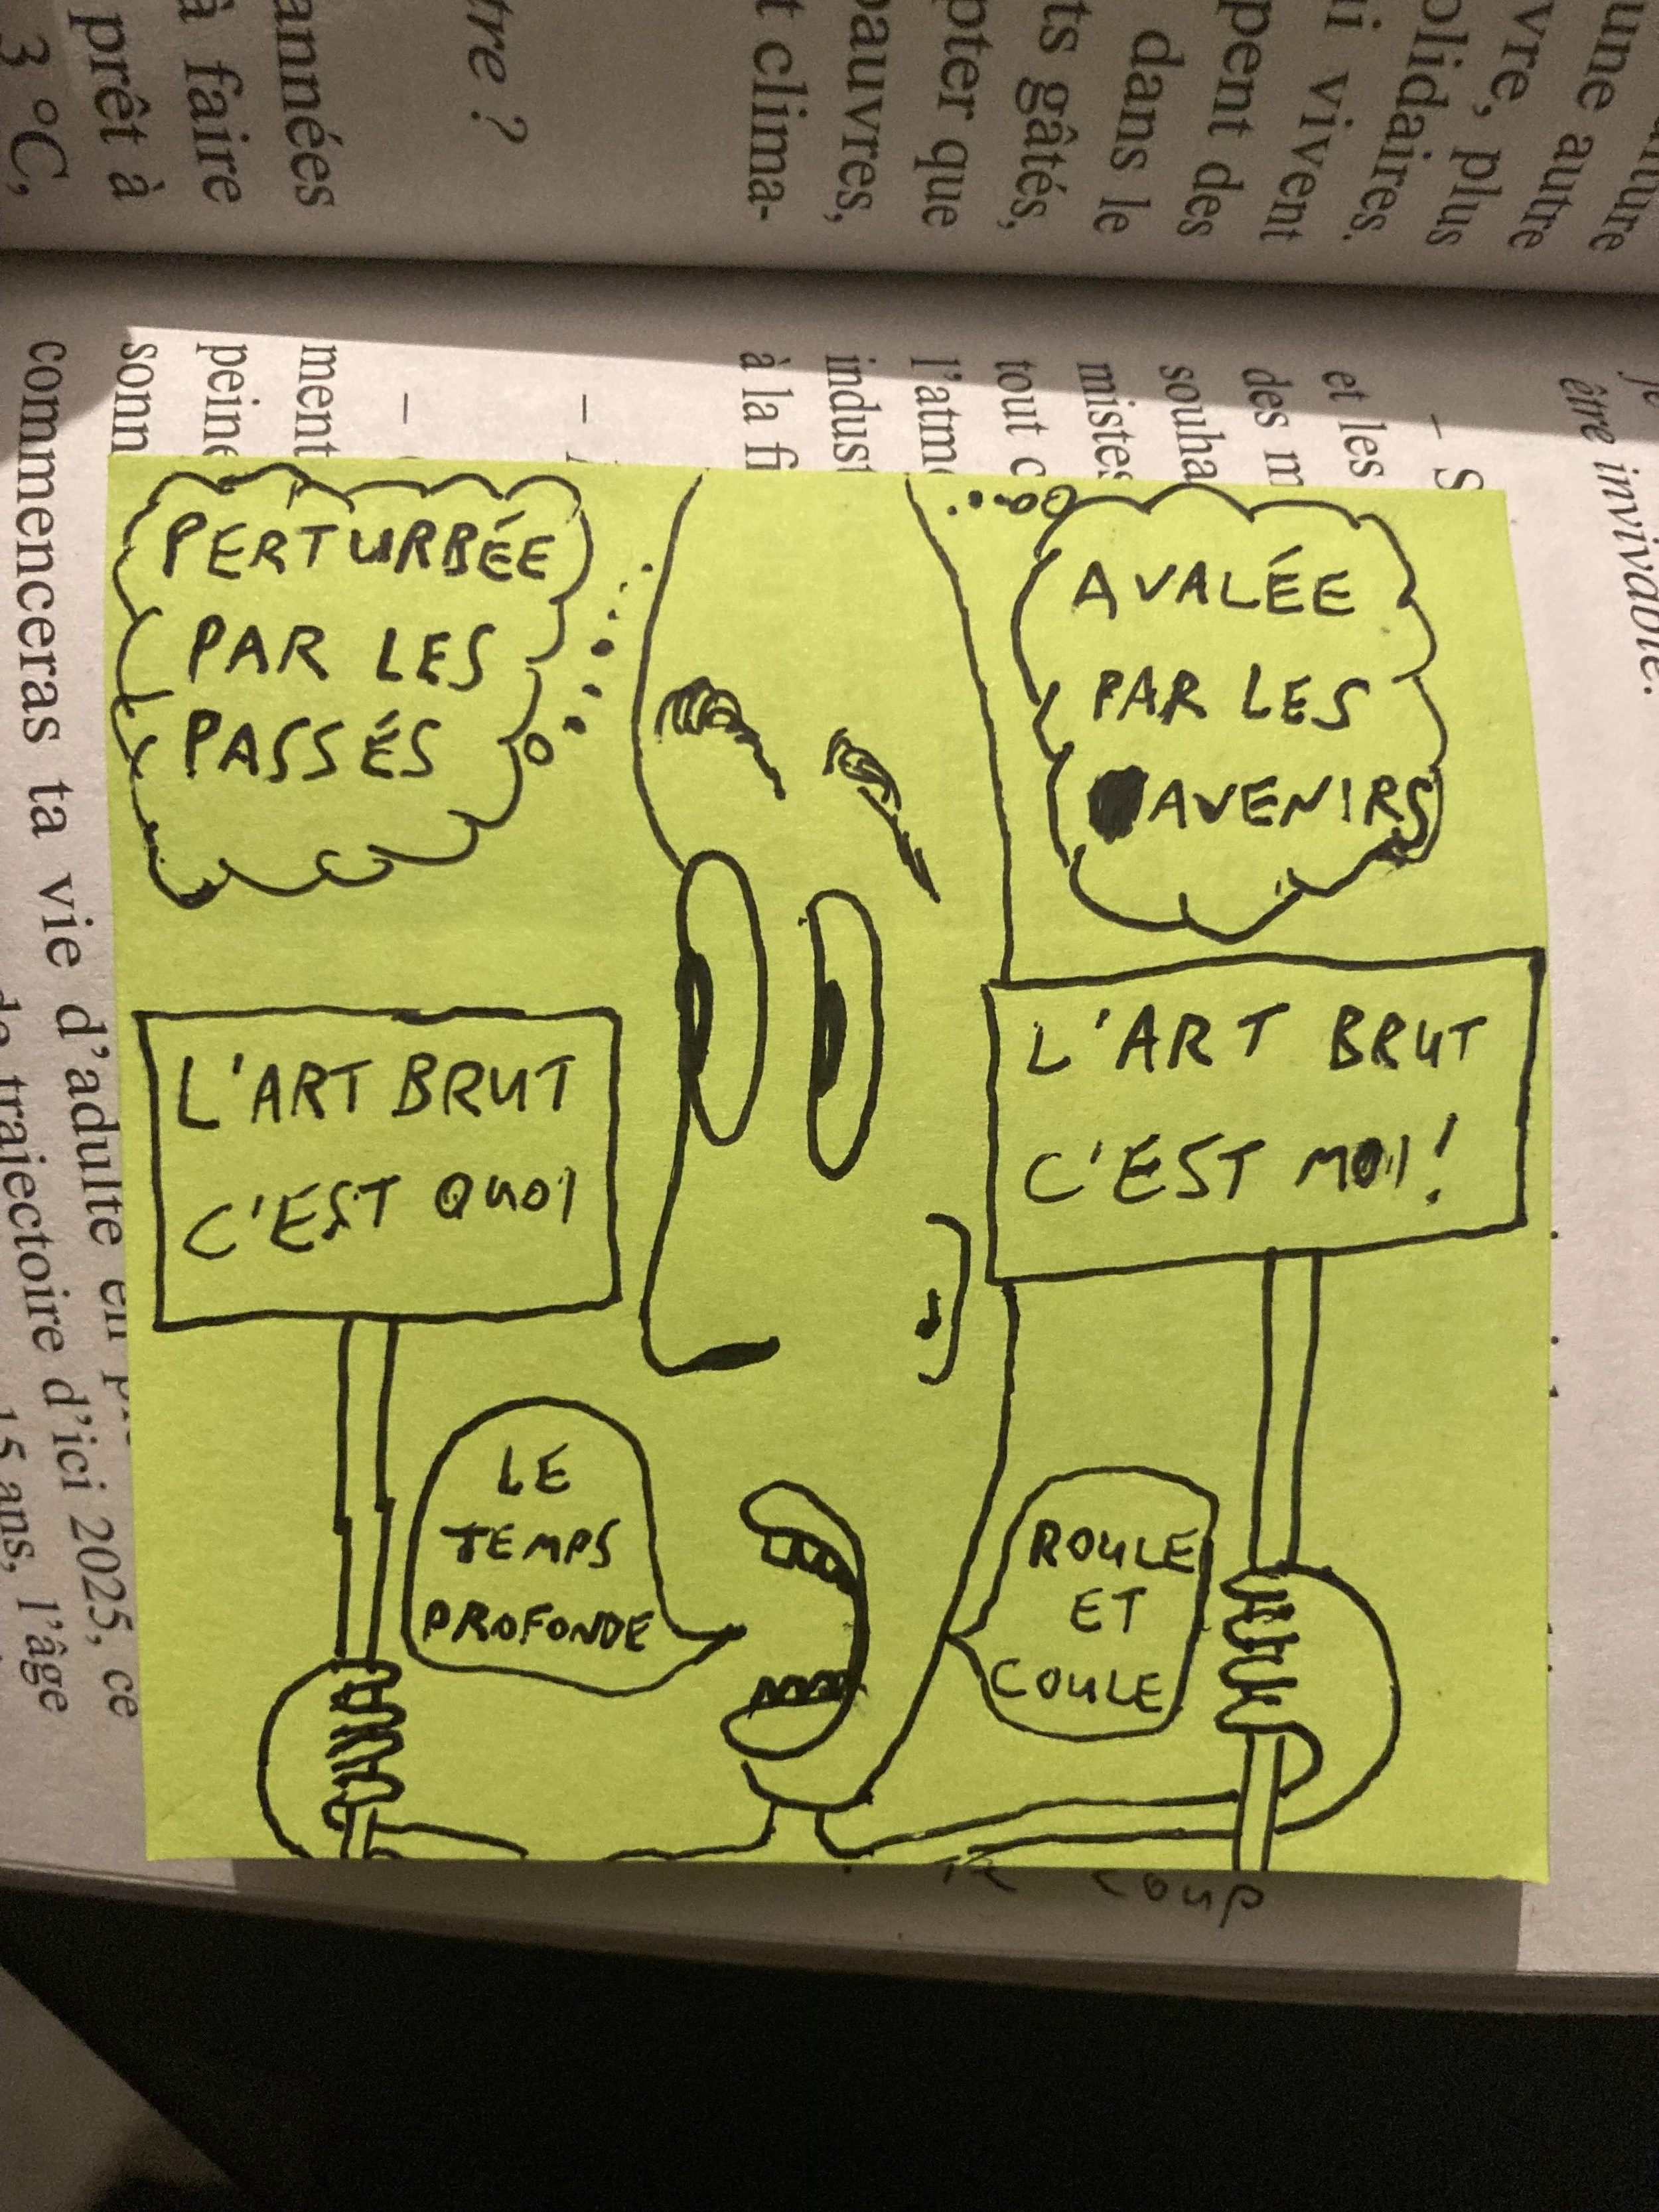 une autre
vre, plus
olidaires.
i vivent
pent des
dans le
ts gâtés,
pter que
pauvres,
t clima-
tre ?
années
à faire
prêt à
3 °C,
être invivable.
– S
et les
des m
souha
mistes
tout c
l'atm
indust
à la fi
–
–
ment
peine
sonn
commenceras ta vie d'adulte en
trajectoire d'ici 2025, ce
15 ans, l'âge
PERTURBÉE
PAR LES
PASSÉS
AVALÉE
PAR LES
AVENIRS
L'ART BRUT
C'EST QUOI
L'ART BRUT
C'EST MOI!
LE
TEMPS
PROFONDE
ROULE
ET
COULE
coup